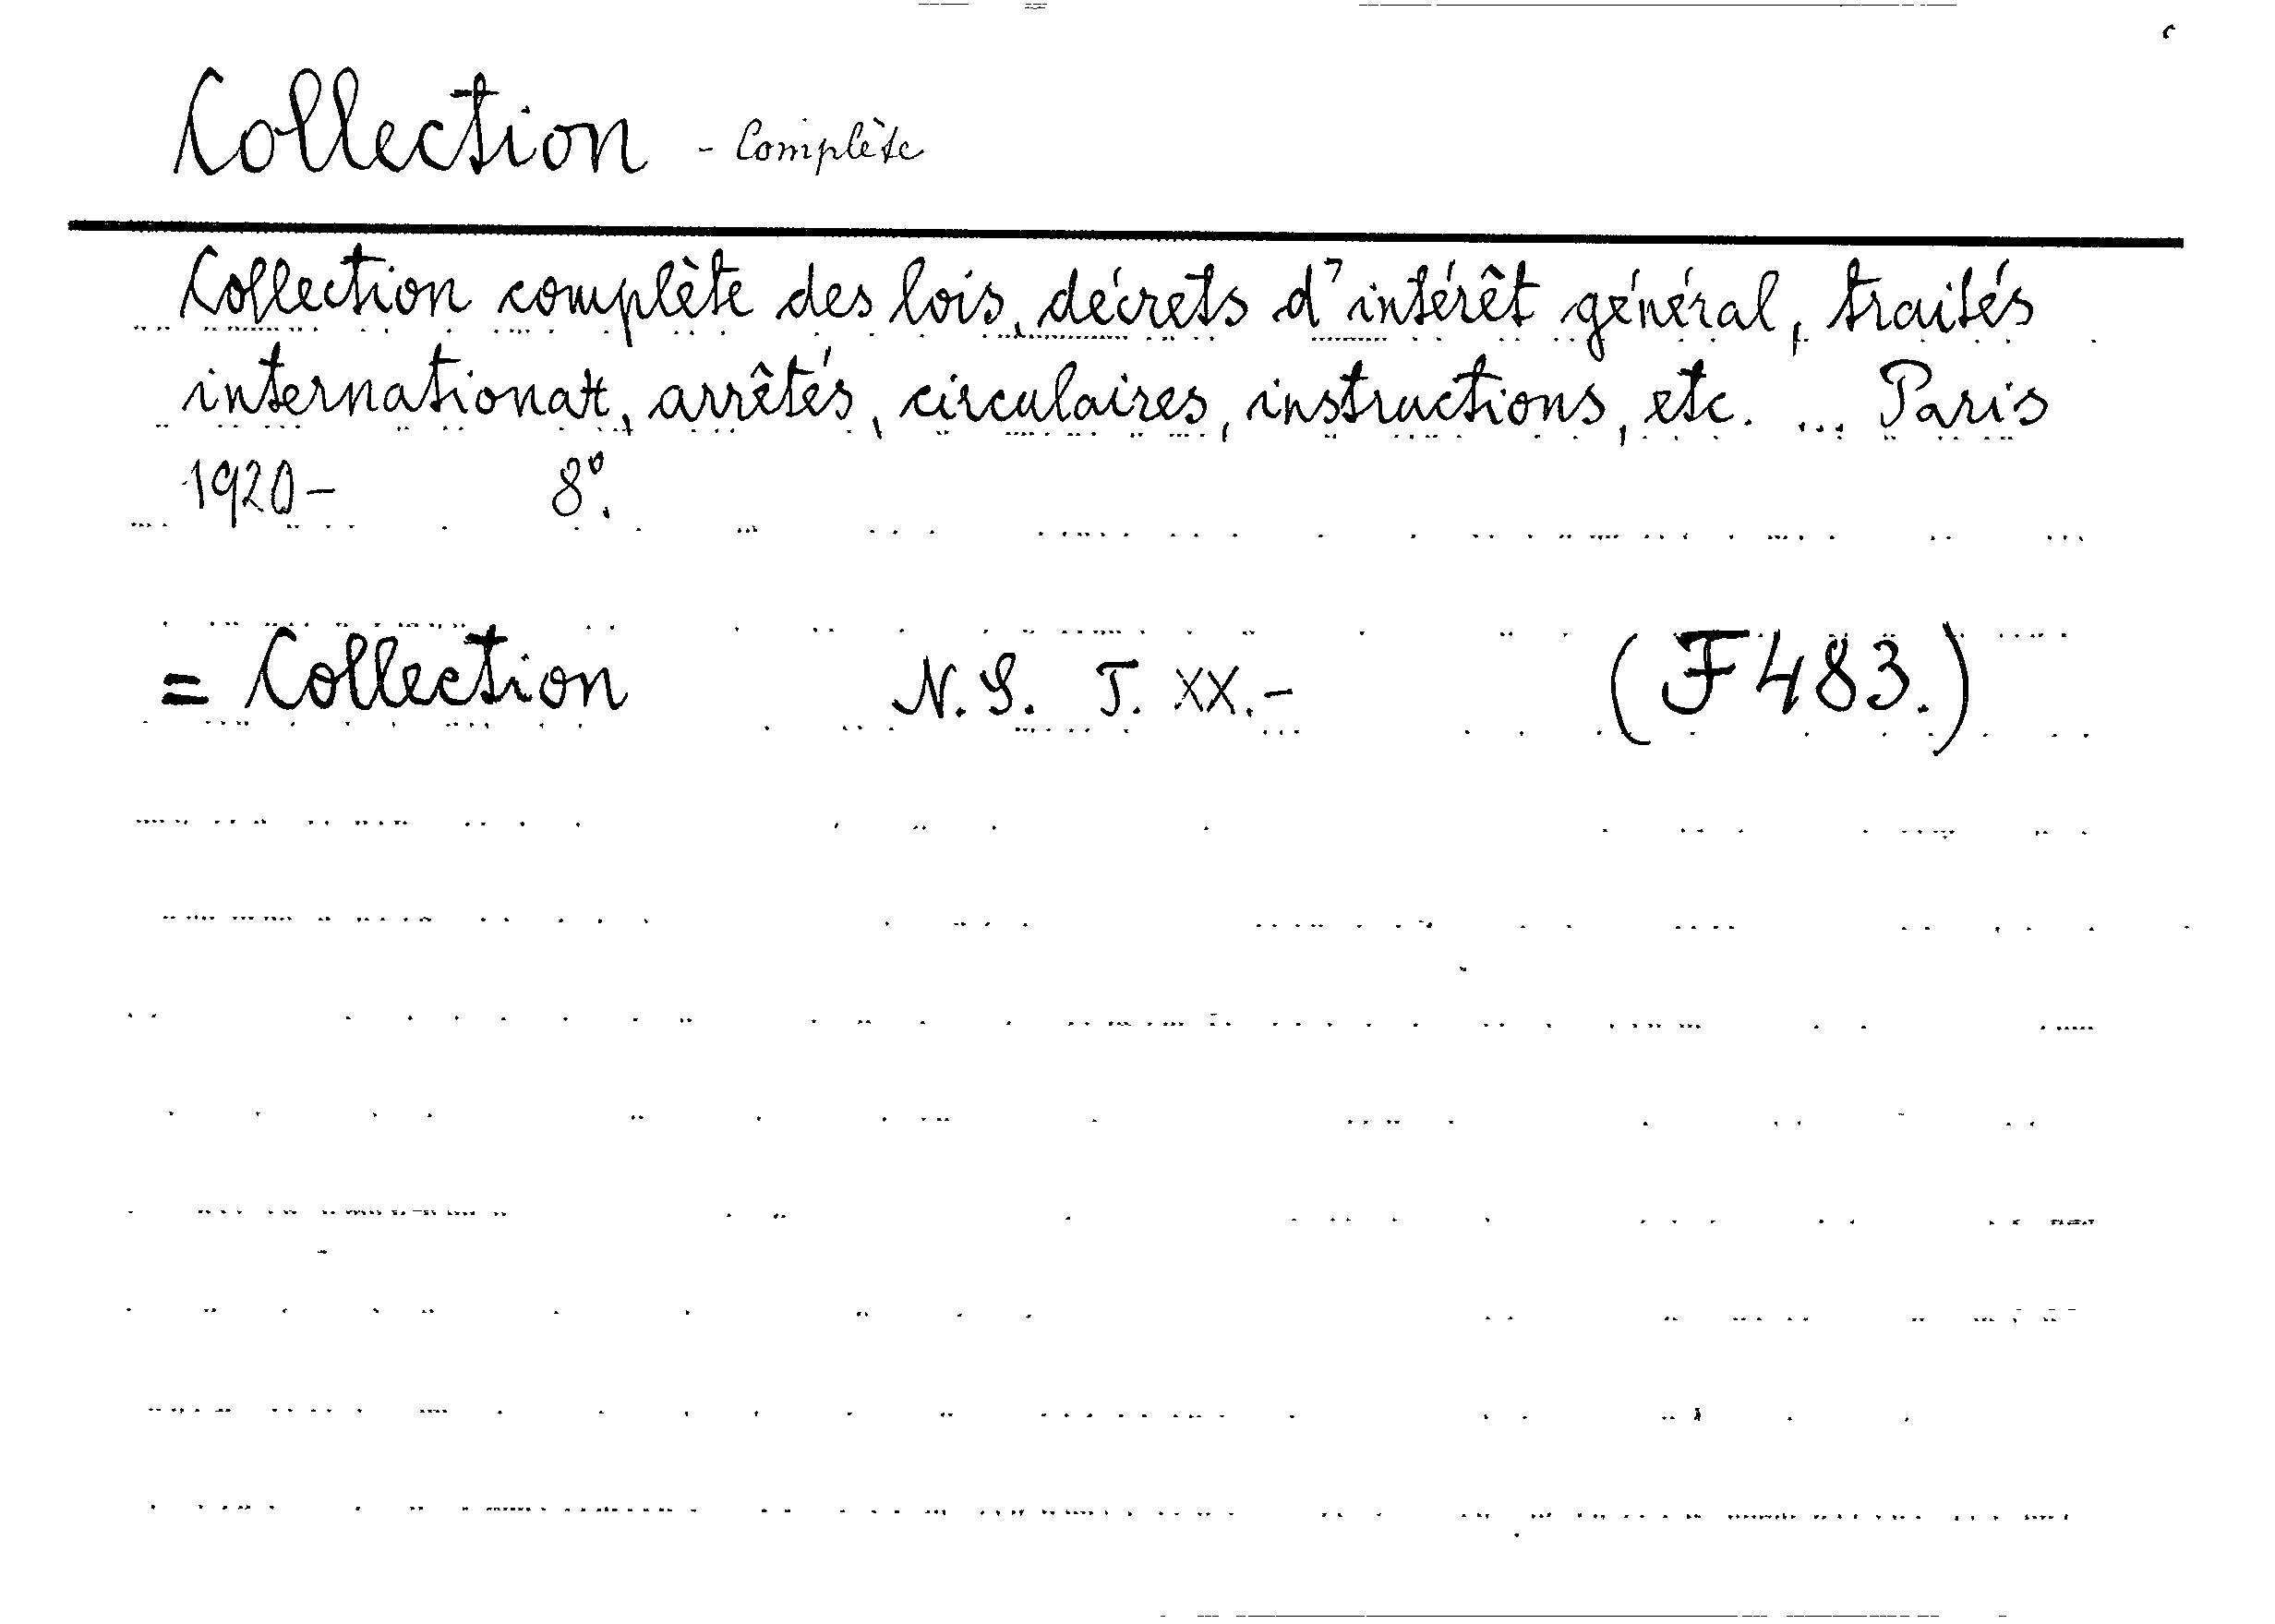 Collection - Complète
Collection complète des lois, décrets d'intérêt général, traités
internationaux, arrêtés, circulaires, instructions, etc. ... Paris
1920- 8°.
= Collection N.S. T. XX.- (F 483.)